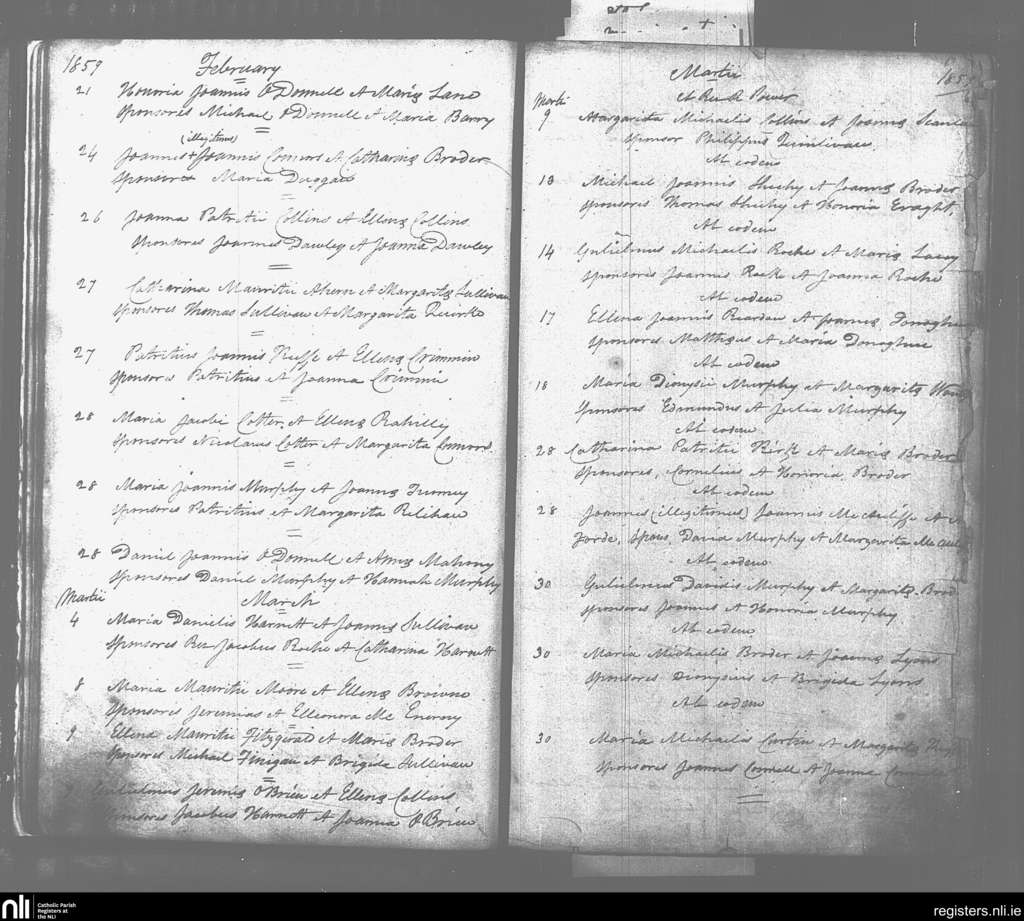 1859 February
21 Honoria Joannis O'Donnell et Mariæ Lane
Sponsores Michael O'Donnell et Maria Barry
(illegitimus)
24 Joannes + Joannis Connors et Catharinæ Broder
Sponsores Maria Duggan
26 Joanna Patritii Collins et Ellenæ Collins
Sponsores Joannes Dawley et Joanna Dawley
27 Catharina Mauritii Ahern et Margaritæ Sullivan
Sponsores Thomas Sullivan et Margarita Quirke
27 Patritius Joannis et Ellenæ Crimmin
Sponsores Patritius et Joanna Crimmin
28 Maria Jacobi Cotter et Ellenæ Rahilly
Sponsores Nicolaus Cotter et Margarita Connors
28 Maria Joannis Murphy et Joannæ Twomey
Sponsores Patritius et Margarita Relihan
28 Daniel Joannis O'Donnell et Annæ Mahony
Sponsores Daniel Murphy et Hannah Murphy
Martii March
4 Maria Danielis Harnett et Joannæ Sullivan
Sponsores Rev Jacobus Roche et Catharina Harnett
8 Maria Mauritii Moore et Ellenæ Browne
Sponsores Jeremias et Elleonora Mc Eneny
9 Ellena Mauritii Fitzgerald et Mariæ Broder
Sponsores Michael Finigan et Brigida Sullivan
9 Gulielmus Jeremiæ O'Brien et Ellenæ Collins
Sponsores Jacobus Harnett et Joanna O'Brien
Martii 1859
Martii At Rev R Power
9 Margarita Michaelis Collins et Joannæ Scanlan
Sponsor Philippus Quinlivan
At eodem
13 Michael Joannis Sheehy et Joannæ Broder
Sponsores Thomas Sheehy et Honoria Eraght
At eodem
14 Gulielmus Michaelis Roche et Mariæ Lacey
Sponsores Joannes Rock et Joanna Roche
At eodem
17 Ellena Joannis Reardon et Joannæ Donoghue
Sponsores Matthæus et Maria Donoghue
At eodem
18 Maria Dionysii Murphy et Margaritæ
Sponsores Edmundus et Julia Murphy
At eodem
28 Catharina Patritii et Mariæ Broder
Sponsores, Cornelius et Honoria Broder
At eodem
28 Joannes (illegitimus) Joannis McAuliffe et
Forde, Spons, David Murphy et Margarita McAul
At eodem
30 Gulielmus Davidis Murphy et Margaritæ Brod
Sponsores Joannes et Honoria Murphy
At eodem
30 Maria Michaelis Broder et Joannæ Lyons
Sponsores Dionysius et Brigida Lyons
At eodem
30 Maria Michaelis et Margaritæ
Sponsores Joannes Connell et Joanna
nli Catholic Parish
Registers at
the NLI
registers.nli.ie